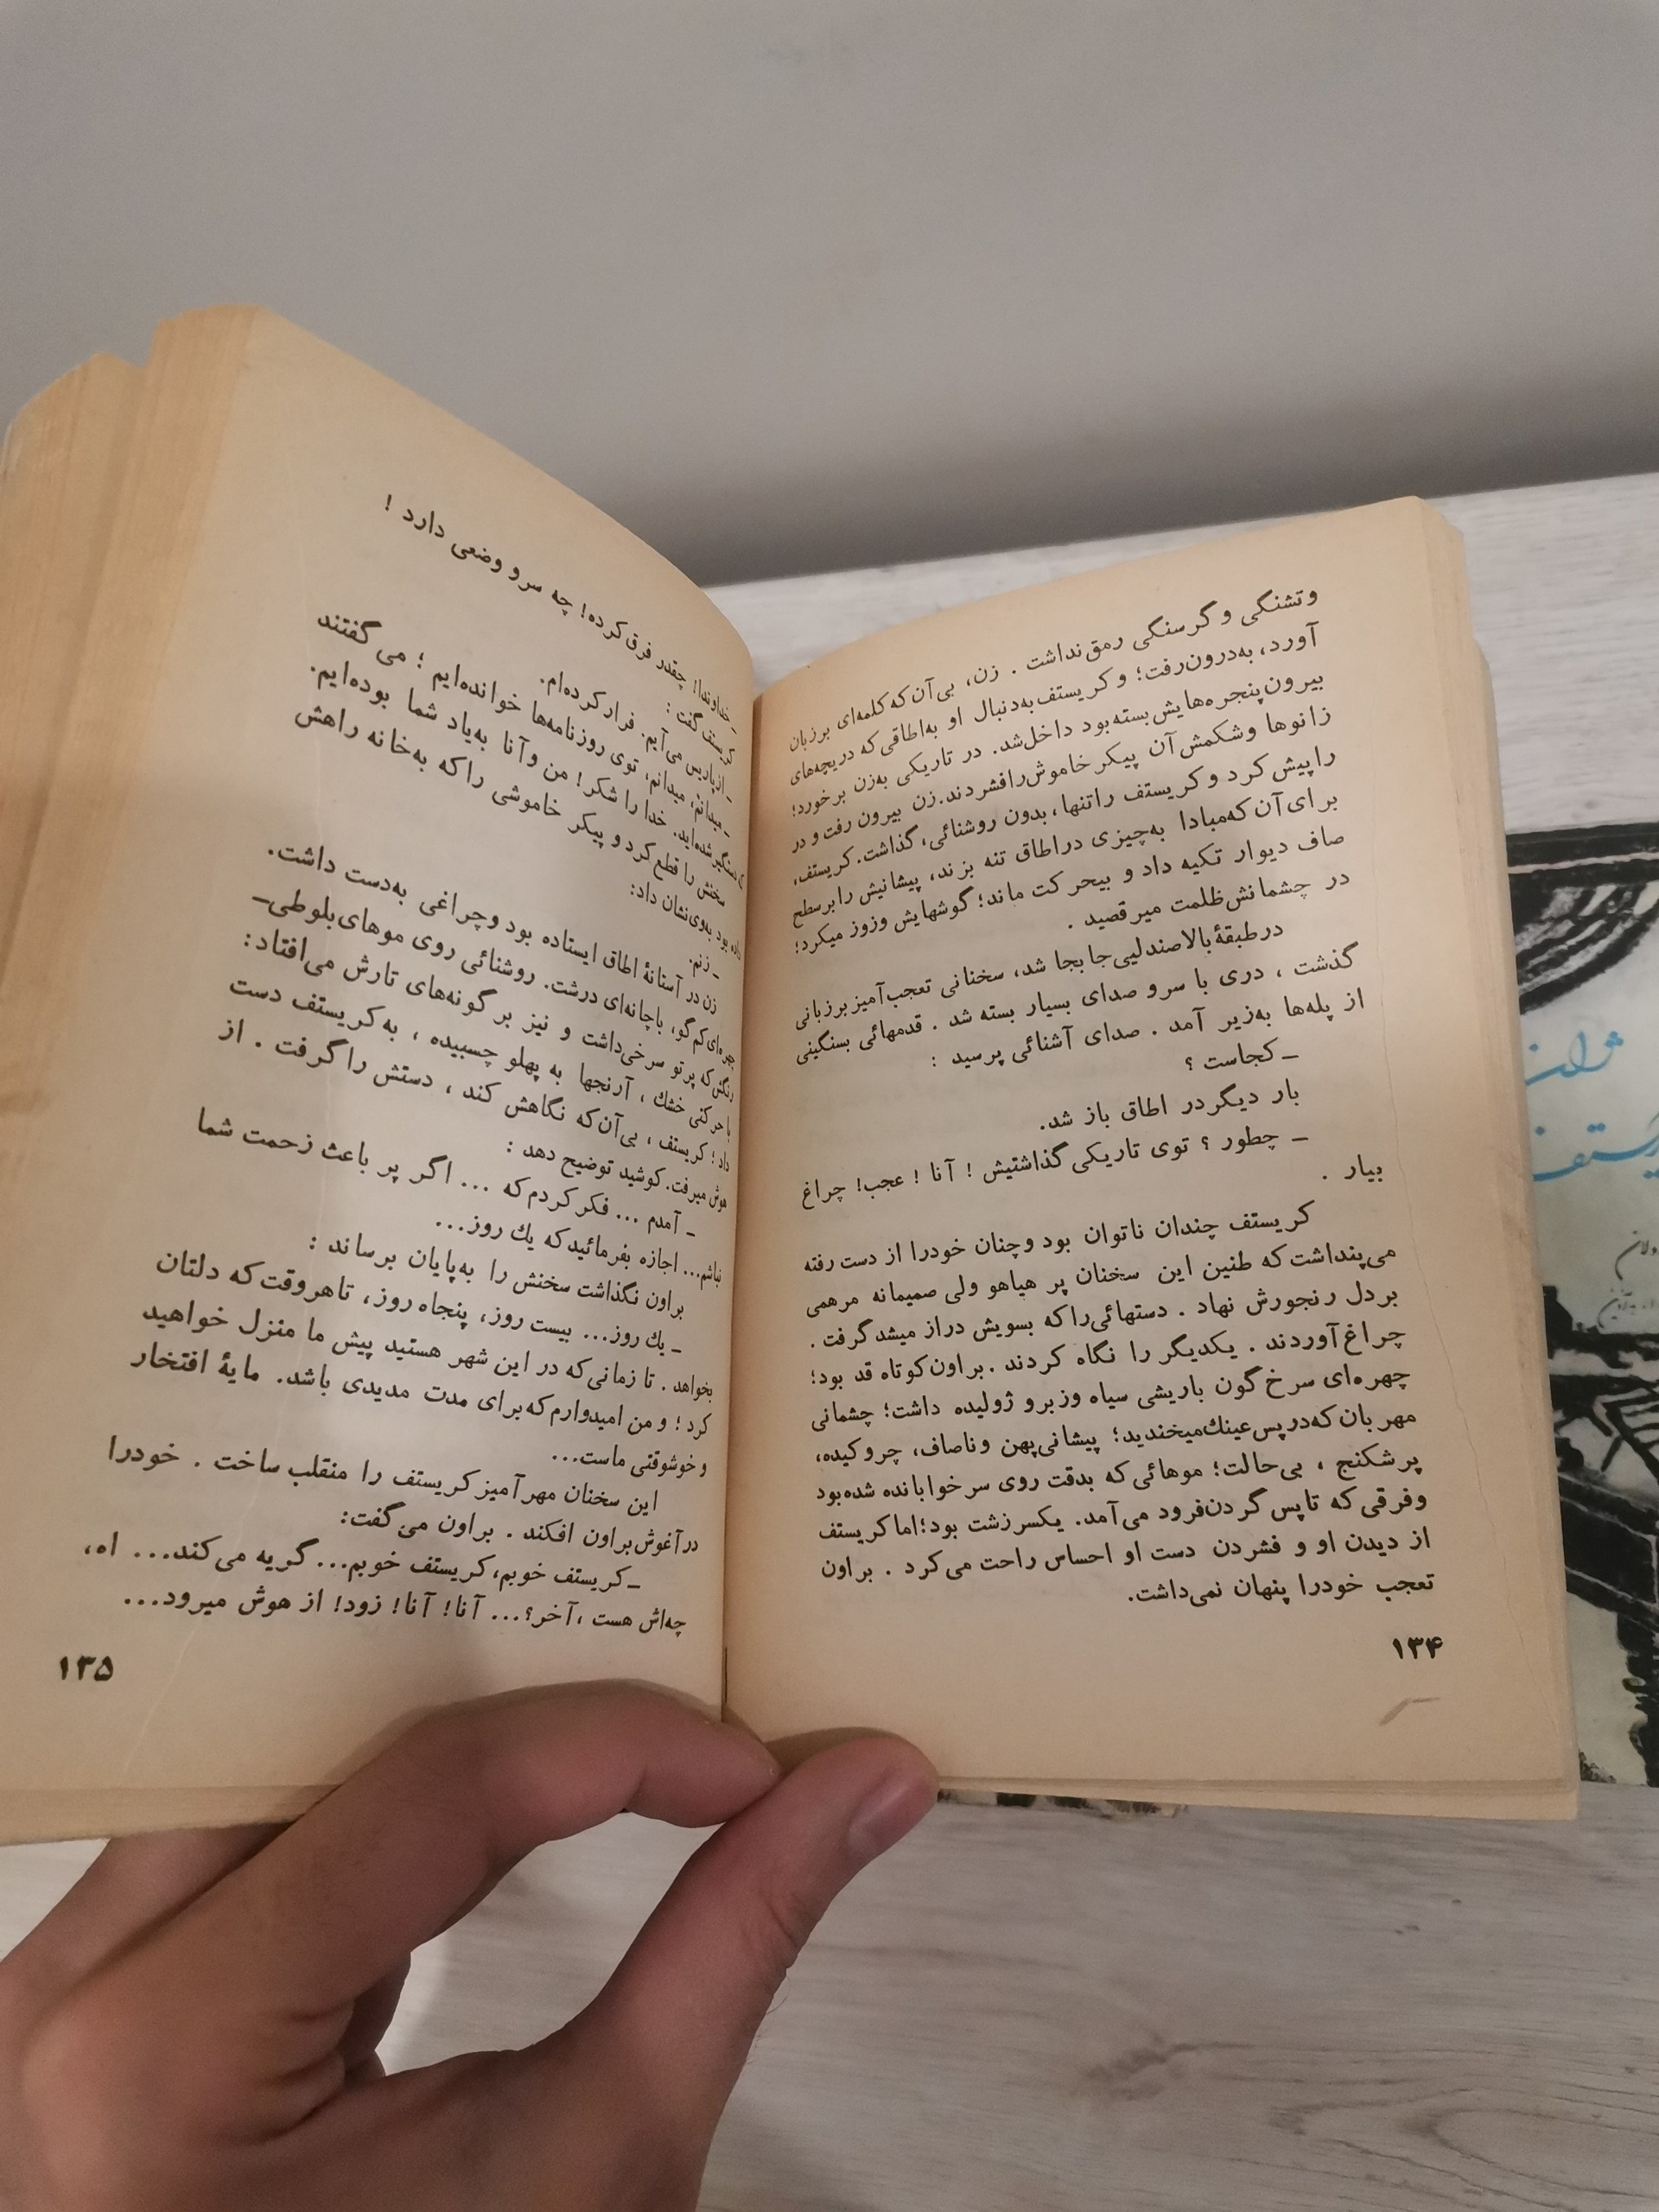 وتشنگی و گرسنگی رمق نداشت . زن، بی‌آن‌که کلمه‌ای برزبان
آورد، به‌درون‌رفت؛ و کریستف به‌دنبال او به‌اطاقی‌که دریچه‌های
بیرون پنجره‌هایش بسته بود داخل‌شد. در تاریکی به‌زن برخورد؛
زانوها وشکمش آن پیکر خاموش‌را فشردند. زن بیرون رفت و در
را پیش کرد و کریستف راتنها، بدون روشنائی، گذاشت. کریستف،
برای آن‌که‌مبادا به‌چیزی دراطاق تنه بزند، پیشانیش را برسطح
صاف دیوار تکیه داد و بیحرکت ماند؛ گوشهایش وزوز میکرد؛
در چشمانش ظلمت میرقصید .
درطبقهٔ بالاصندلیی جا بجا شد، سخنانی تعجب‌آمیز برزبانی
گذشت ، دری با سر و صدای بسیار بسته شد . قدمهائی بسنگینی
از پله‌ها به‌زیر آمد . صدای آشنائی پرسید :
ـ کجاست ؟
بار دیگر در اطاق باز شد.
ـ چطور ؟ توی تاریکی گذاشتیش ! آنا ! عجب! چراغ
بیار .
کریستف چندان ناتوان بود وچنان خودرا از دست رفته
می‌پنداشت‌که طنین این سخنان پر هیاهو ولی صمیمانه مرهمی
بردل رنجورش نهاد . دستهائی‌راکه بسویش دراز میشد گرفت .
چراغ آوردند . یکدیگر را نگاه کردند . براون کوتاه قد بود؛
چهره‌ای سرخ گون باریشی سیاه وزبر و ژولیده داشت؛ چشمانی
مهربان که‌درپس عینك‌میخندید؛ پیشانی پهن وناصاف، چروکیده،
پرشکنج ، بی‌حالت؛ موهائی که بدقت روی سرخوابانده شده بود
وفرقی که تا پس گردن‌فرود می‌آمد. یکسر زشت بود؛ اما کریستف
از دیدن او و فشردن دست او احساس راحت می‌کرد . براون
تعجب خودرا پنهان نمی‌داشت.
۱۳۴
ـ خداوندا! چقدر فرق کرده! چه سر و وضعی دارد !
کریستف گفت :
ـ ازپاریس می‌آیم. فرار کرده‌ام.
ـ میدانم، میدانم، توی روزنامه‌ها خوانده‌ایم ؛ می گفتند
دستگیر شده‌اید. خدا را شکر! من وآنا به‌یاد شما بوده‌ایم.
سخنش را قطع کرد و پیکر خاموشی را که به‌خانه راهش
داده بود به‌وی نشان داد:
ـ زنم.
زن در آستانهٔ اطاق ایستاده بود وچراغی به‌دست داشت.
چهره‌ای کم گو، باچانه‌ای درشت. روشنائی روی موهای‌بلوطی‌ـ
رنگش که پرتو سرخی‌داشت و نیز بر گونه‌های تارش می‌افتاد:
با حرکتی خشك ، آرنجها به پهلو چسبیده ، به کریستف دست
داد؛ کریستف ، بی‌آن‌که نگاهش کند ، دستش را گرفت . از
هوش میرفت. کوشید توضیح دهد :
ـ آمدم ... فکر کردم که ... اگر پر باعث زحمت شما
نباشم... اجازه بفرمائید که یك روز...
براون نگذاشت سخنش را به‌پایان برساند :
ـ یك روز... بیست روز، پنجاه روز، تاهروقت که دلتان
بخواهد . تا زمانی‌که در این شهر هستید پیش ما منزل خواهید
کرد ؛ و من امیدوارم که برای مدت مدیدی باشد. مایهٔ افتخار
و خوشوقتی ماست...
این سخنان مهر آمیز کریستف را منقلب ساخت . خودرا
در آغوش براون افکند . براون می گفت:
ـ کریستف خوبم، کریستف خوبم... گریه می کند... اه،
چه‌اش هست ، آخر؟... آنا! آنا! زود! از هوش میرود...
۱۳۵